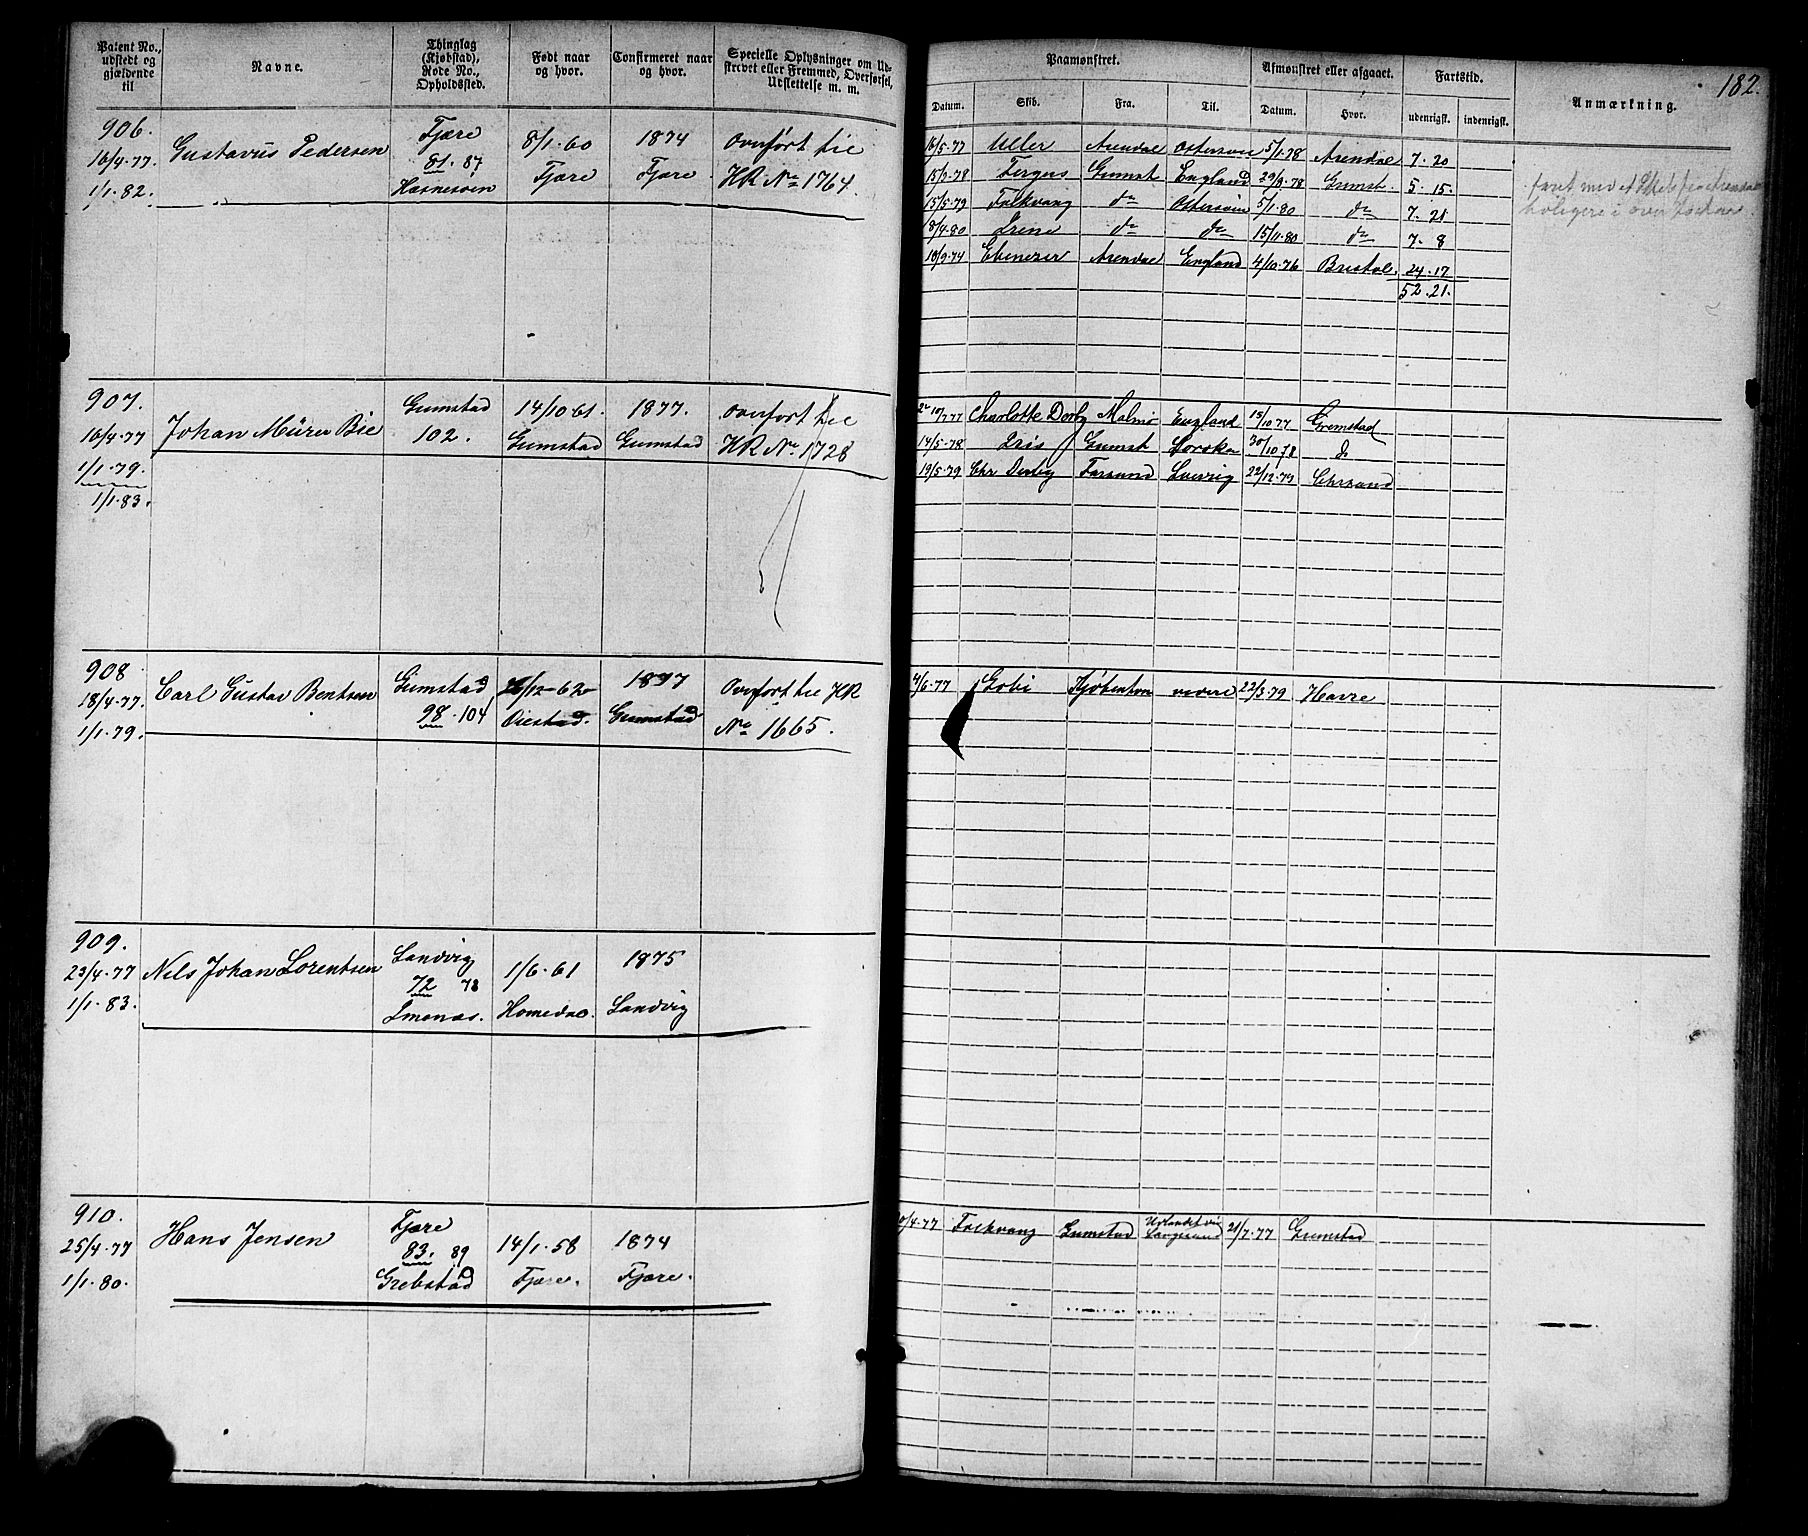 182.
Patent No., udstedt og gjældende til
Navne.
Thinglag (Kjøbstad), Rode No., Opholdssted.
Født naar og hvor.
Confirmeret naar og hvor.
Specielle Oplysninger om Udskrevet eller Fremmed, Overførsel, Udslettelse m. m.
Paamønstret.
Afmønstret eller afgaaet.
Fartstid.
Anmærkning.
Datum. Skib. Fra. Til. Datum. Hvor. udenrigsk. indenrigsk.
906.
16/4.77.
1/1.82.
Gustavus Pedersen
Fjære
81. 87
Hasnesøen
8/1.60
Fjære
1874
Fjære
Overført til
HR No 1764.
16/5.77 Uller Arendal Østersøen 5/1.78 Arendal 7. 20
15/3.78 Fergus Grimst England 29/9.78 Grimst 5. 15.
15/5.79 Falkvang do Østersøen 5/1.80 do 7. 21
8/4.80 Irene do do 15/11.80 do 7. 8
18/9.74 Ebenezer Arendal England 4/10.76 Bristol. 24.17
52.21.
faret med
907.
16/4.77
1/1.79.
1/1.83.
Johan Mürer Bie
Grimstad
102.
14/10 61.
Grimstad
1877.
Grimstad
Overført til
HR No. 1728
10/7.77 Charlotte Derby Malmø England 15/10 77 Gremstad
14/5.78 Iris Grimst 30/10 78 do
19/5.79 Chr Derby Farsund Laurvig 22/12.79 Chrsand
908.
18/4.77.
1/1.79.
Carl Gustav Bentsen
Grimstad
98.104
26/12-62
Øiestad.
1877
Grimstad
Overført til HR
No 1665.
4/6.77 Gobi Kjøbenhvn videre 22/3.79 Havre
909.
23/4.77
1/1.83.
Nils Johan Lorentsen
Landvig
72 78
Imenæs.
1/6.61
Homedal.
1875
Landvig
910.
25/4.77
1/1.80.
Hans Jensen
Fjære
83. 89
Grebstad
14/1.58
Fjære.
1874
Fjære.
/4.77 Falkvang Grimstad Udlandet via Langesund 21/7.77 Grimstad